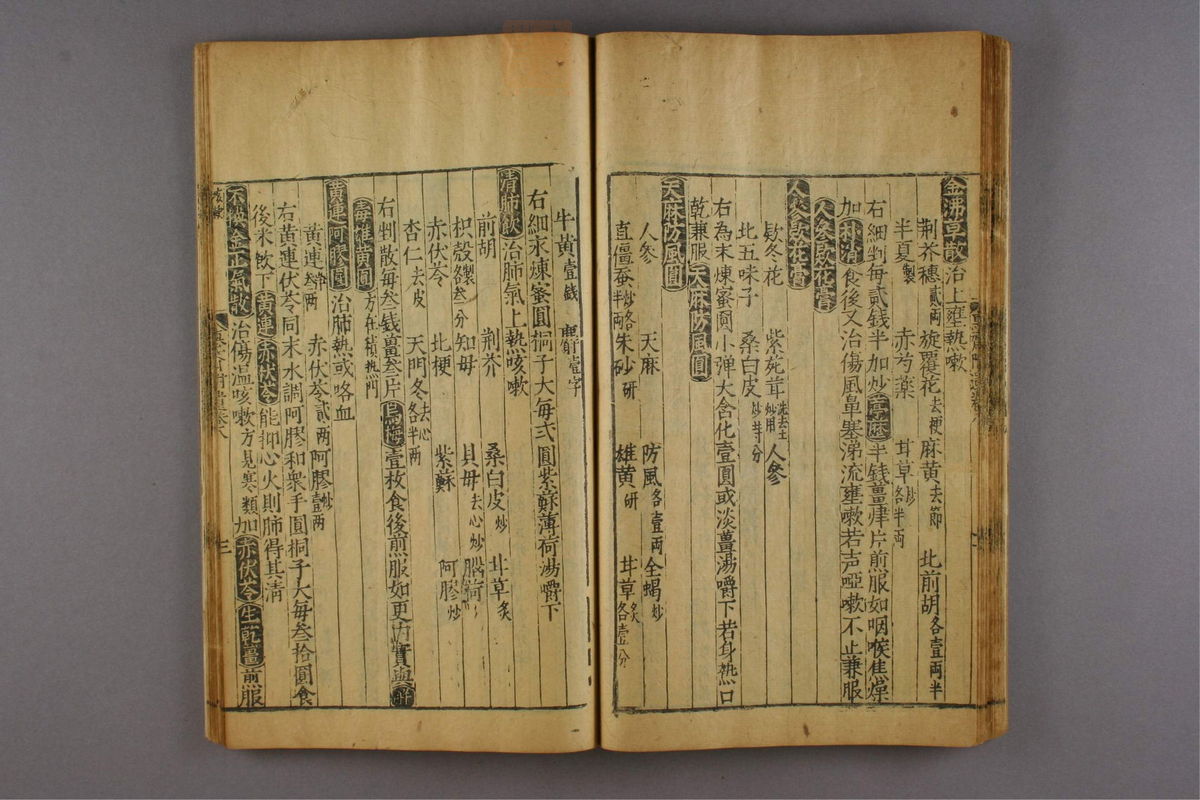 金沸草散 治上壅熱嗽
荆芥穗貳兩 旋覆花去梗 麻黄去節 北前胡各壹兩半
半夏製 赤芍藥 甘草炒各半兩
右細剉每貳錢半加炒葶藶半錢薑肆片煎服如咽喉焦燥
加朴消食後又治傷風鼻塞涕流壅嗽若声啞嗽不止兼服
人參款花膏
人參款花膏
款冬花 紫菀茸洗去土炒用 人參
北五味子 桑白皮炒等分
右為末煉蜜圓小彈大含化壹圓或淡薑湯嚼下若身熱口
乾兼服天麻防風圓
天麻防風圓
人參 天麻 防風各壹兩 全蝎炒
直僵蚕炒各半兩 朱砂研 雄黄研 甘草炙各壹分
牛黄壹錢 麝壹字
右細末煉蜜圓桐子大每弍圓紫蘇薄荷湯嚼下
清肺飲 治肺氣上熱咳嗽
前胡 荆芥 桑白皮炒 甘草炙
枳殻各製叁分 知母 貝母去心炒 薄荷
赤伏苓 北梗 紫蘇 阿膠炒
杏仁去皮 天門冬去心各半兩
右剉散每叁錢薑叁片烏梅壹枚食後煎服如更内實與解
毒雄黄圓方在積熱門
黄連阿膠圓 治肺熱或咯血
黄連叁兩 赤伏苓貳兩 阿膠炒壹兩
右黄連伏苓同末水調阿膠和衆手圓桐子大每叁拾圓食
後米飲下黄連赤伏苓能抑心火則肺得其清
不換金正氣散 治傷温咳嗽方見寒類加赤伏苓生乾薑煎服
咳嗽
三